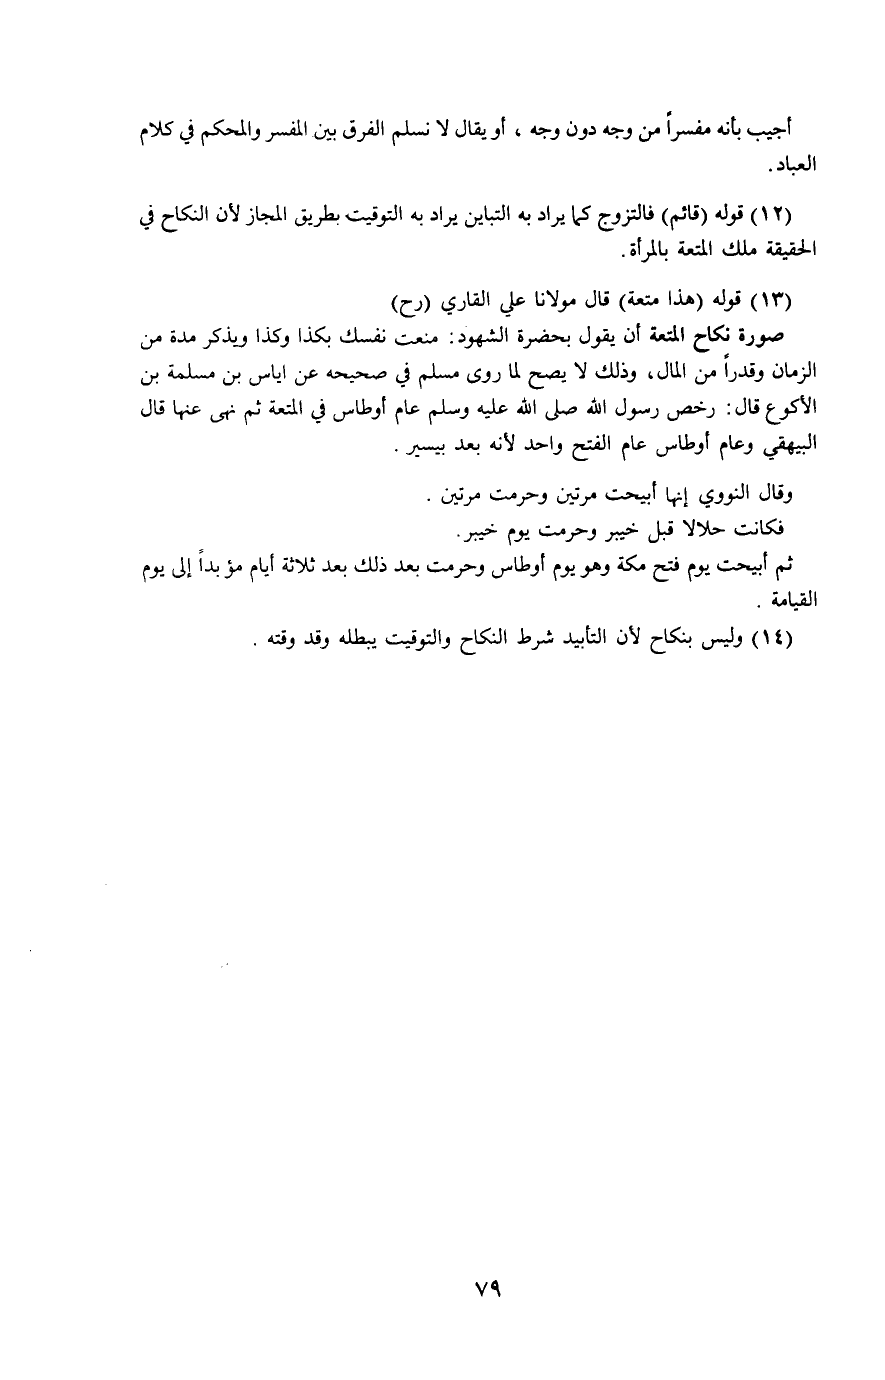 أجيب بأنه مفسراً من وجه دون وجه ، أو يقال لا نسلم الفرق بين المفسر والمحكم في كلام
العباد.
(١٢) قوله (قائم) فالتزوج كما يراد به التباين يراد به التوقيت بطريق المجاز لأن النكاح في
الحقيقة ملك المتعة بالمرأة.
(١٣) قوله (هذا متعة) قال مولانا علي القاري (رح)
صورة نكاح المتعة أن يقول بحضرة الشهود: منعت نفسك بكذا وكذا ويذكر مدة من
الزمان وقدراً من المال، وذلك لا يصح لما روى مسلم في صحيحه عن اياس بن مسلمة بن
الأكوع قال: رخص رسول الله صلى الله عليه وسلم عام أوطاس في المتعة ثم نهى عنها قال
البيهقي وعام أوطاس عام الفتح واحد لأنه بعد بيسير .
وقال النووي إنها أبيحت مرتين وحرمت مرتين .
فكانت حلالا قبل خيبر وحرمت يوم خيبر.
ثم أبيحت يوم فتح مكة وهو يوم أوطاس وحرمت بعد ذلك بعد ثلاثة أيام مؤبداً إلى يوم
القيامة .
(١٤) وليس بنكاح لأن التأبيد شرط النكاح والتوقيت يبطله وقد وقته .
٧٩